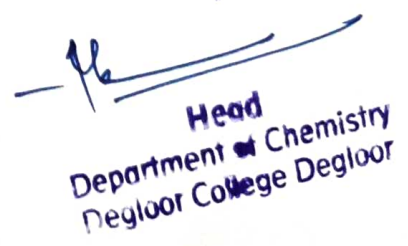 Head
Department of Chemistry
Degloor College Degloor